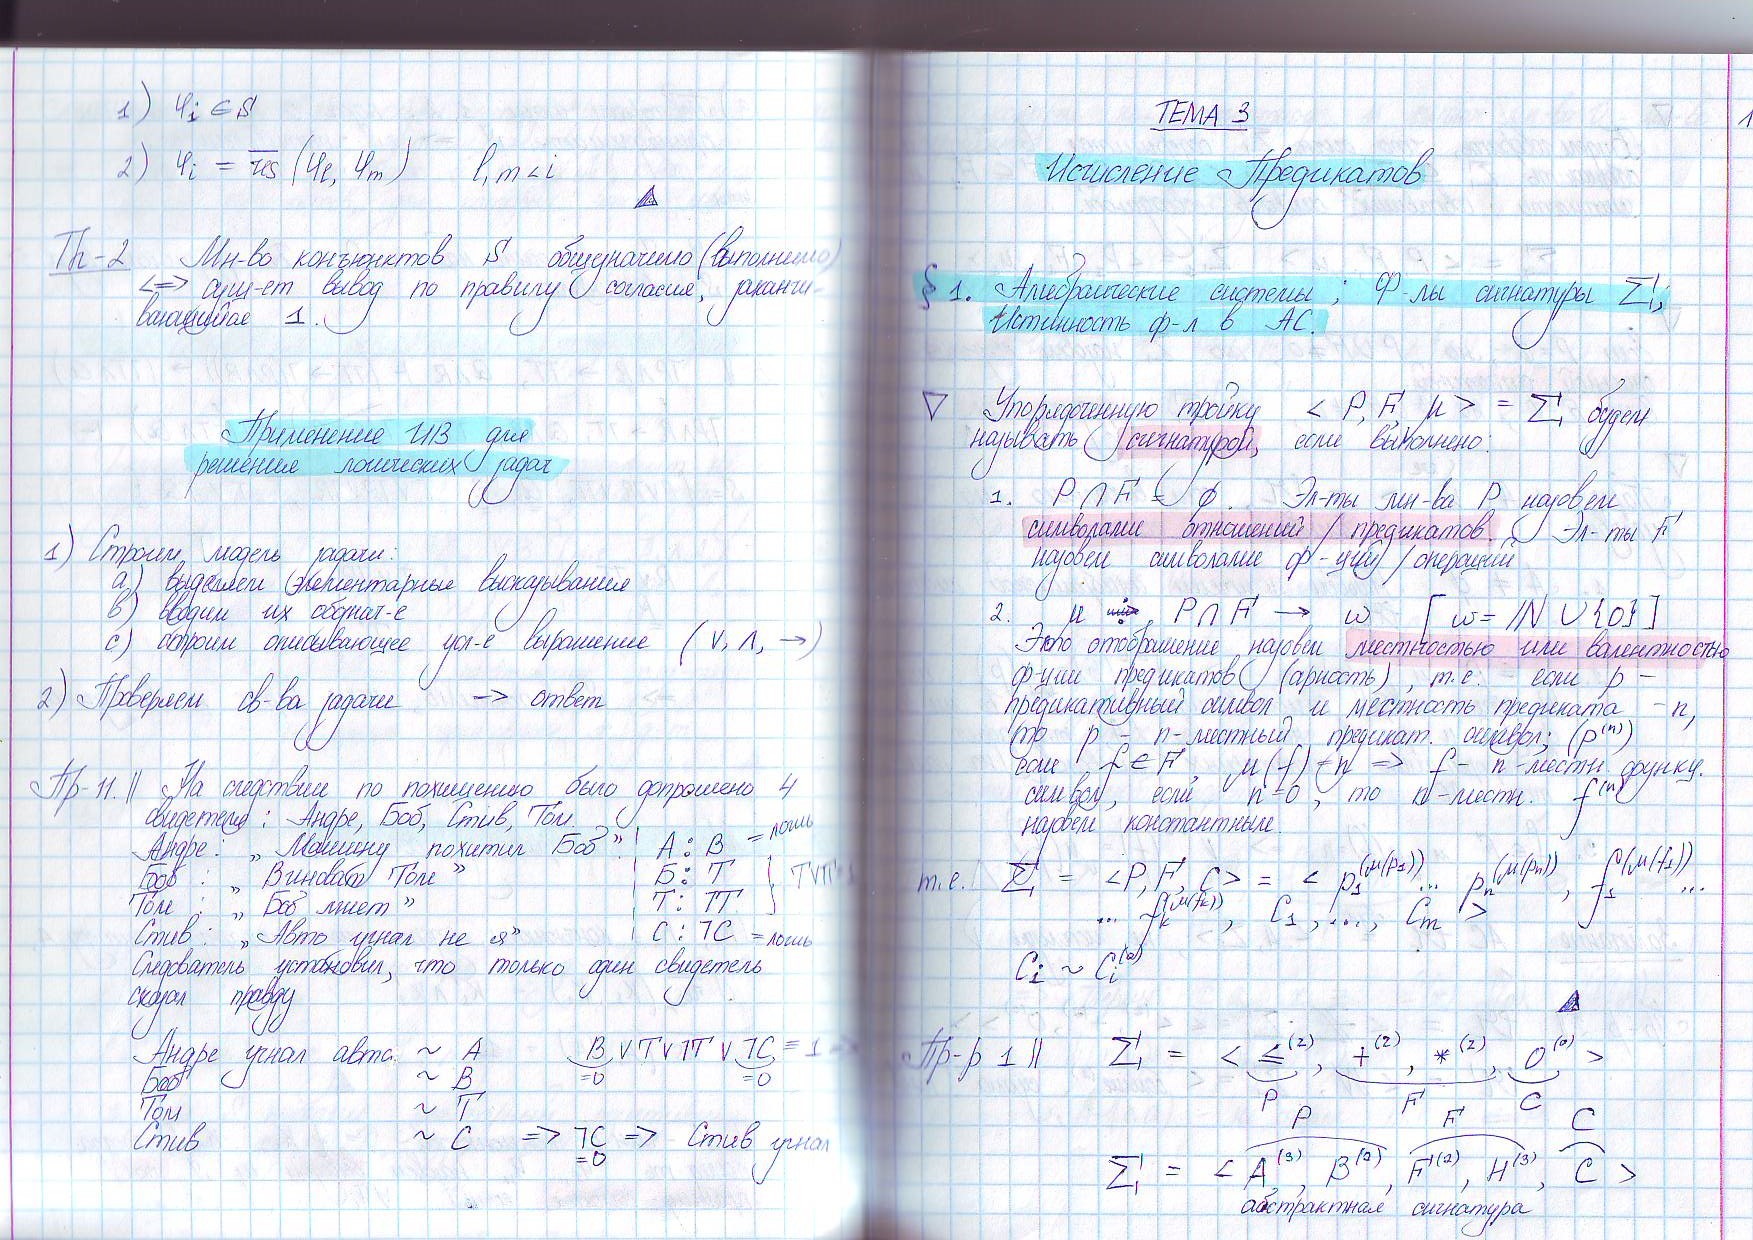 1) φi ∈ S
2) φi = r̅e̅s̅ (φl, φm)   l, m < i
Th-2 Мн-во конъюнктов S общезначимо (выполнимо)
<=> сущ-ет вывод по правилу согласия, заканчи-
вающийся 1.
Применение ИВ для
решения логических задач
1) Строим модель задачи:
a) выделяем элементарные высказывания
b) вводим их обознач-е
c) строим описывающее усл-е выражение (∨, ∧, →)
2) Проверяем св-ва задачи → ответ
Пр-11. || На следствии по похищению было допрошено 4
свидетеля: Андре, Боб, Стив, Том
Андре: „Машину похитил Боб". А : В = ложь
Боб : „Виноват Том" Б : Т
Том : „Боб лжет" Т : ⅂Т
Стив : „Авто угнал не я" С : ⅂С = ложь
Следователь установил, что только один свидетель
сказал правду
Андре угнал авто ~ A   B ∨ T ∨ ⅂T ∨ ⅂C ≡ 1
=0 =0
Боб ~ B
Том ~ T
Стив ~ C => ⅂C => Стив угнал
=0
ТЕМА 3
1
Исчисление Предикатов
§ 1. Алгебраические системы; Ф-лы сигнатуры Σ;
Истинность ф-л в АС.
▽ Упорядоченную тройку < P, F, μ > = Σ будем
называть сигнатурой, если выполнено:
1. P ∩ F = ∅. Эл-ты мн-ва P назовем
символами отношений / предикатов. Эл-ты F
назовем символами ф-ций / операций
2. μ : P ∩ F → ω [ω = ℕ ∪ {0}]
Это отображение назовем местностью или валентностью
ф-ции предикатов (арность), т.е. если p –
предикативный символ и местность предиката – n,
то p – n-местный предикат. символ; (p⁽ⁿ⁾)
если f ∈ F, μ(f) = n => f – n-местн. функц.
символ, если n=0, то n-местн. f⁽ⁿ⁾
назовем константным.
т.е. Σ = <P, F, C> = < p₁^(μ(p₁)) ... pₙ^(μ(pₙ)), f₁^(μ(f₁)) ...
... fₖ^(μ(fₖ)), C₁, ..., Cm >
Ci ~ Ci⁽⁰⁾
Пр-р 1 || Σ = < ≤⁽²⁾, +⁽²⁾, *⁽²⁾, 0⁽⁰⁾ >
P F C
P F C
Σ = < A⁽³⁾, B⁽²⁾, F⁽²⁾, H⁽³⁾, C >
абстрактная сигнатура